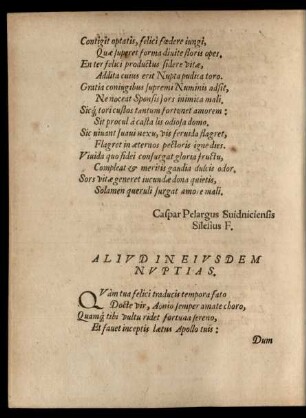 Contigit optatis, felici fœdere iungi,
Quæ superet forma diuite floris opes.
En ter felici productus sidere vitæ,
Addita cuius erit Nupta pudica toro.
Gratia coniugibus supremi Numinis adsit,
Ne noceat Sponsis sors inimica mali,
Sicq́; tori custos tantum fortunet amorem:
Sit procul à casta lis odiosa domo.
Sic uiuant suaui nexu, vis feruida flagret,
Flagret in æternos pectoris igne dies.
Viuida quo fidei consurgat gloria fructu,
Compleat & meritis gaudia dulcis odor.
Sors vitæ generet iucundæ dona quietis,
Solamen queruli surgat amore mali.
Caspar Pelargus Suidniciensis
Silesius F.
ALIVD IN EIVSDEM
NVPTIAS.
QVàm tua felici traducis tempora fato
Docte vir, Aonio semper amate choro,
Quamq́; tibi vultu ridet fortuna sereno,
Et fauet inceptis lætus Apollo tuis:
Dum